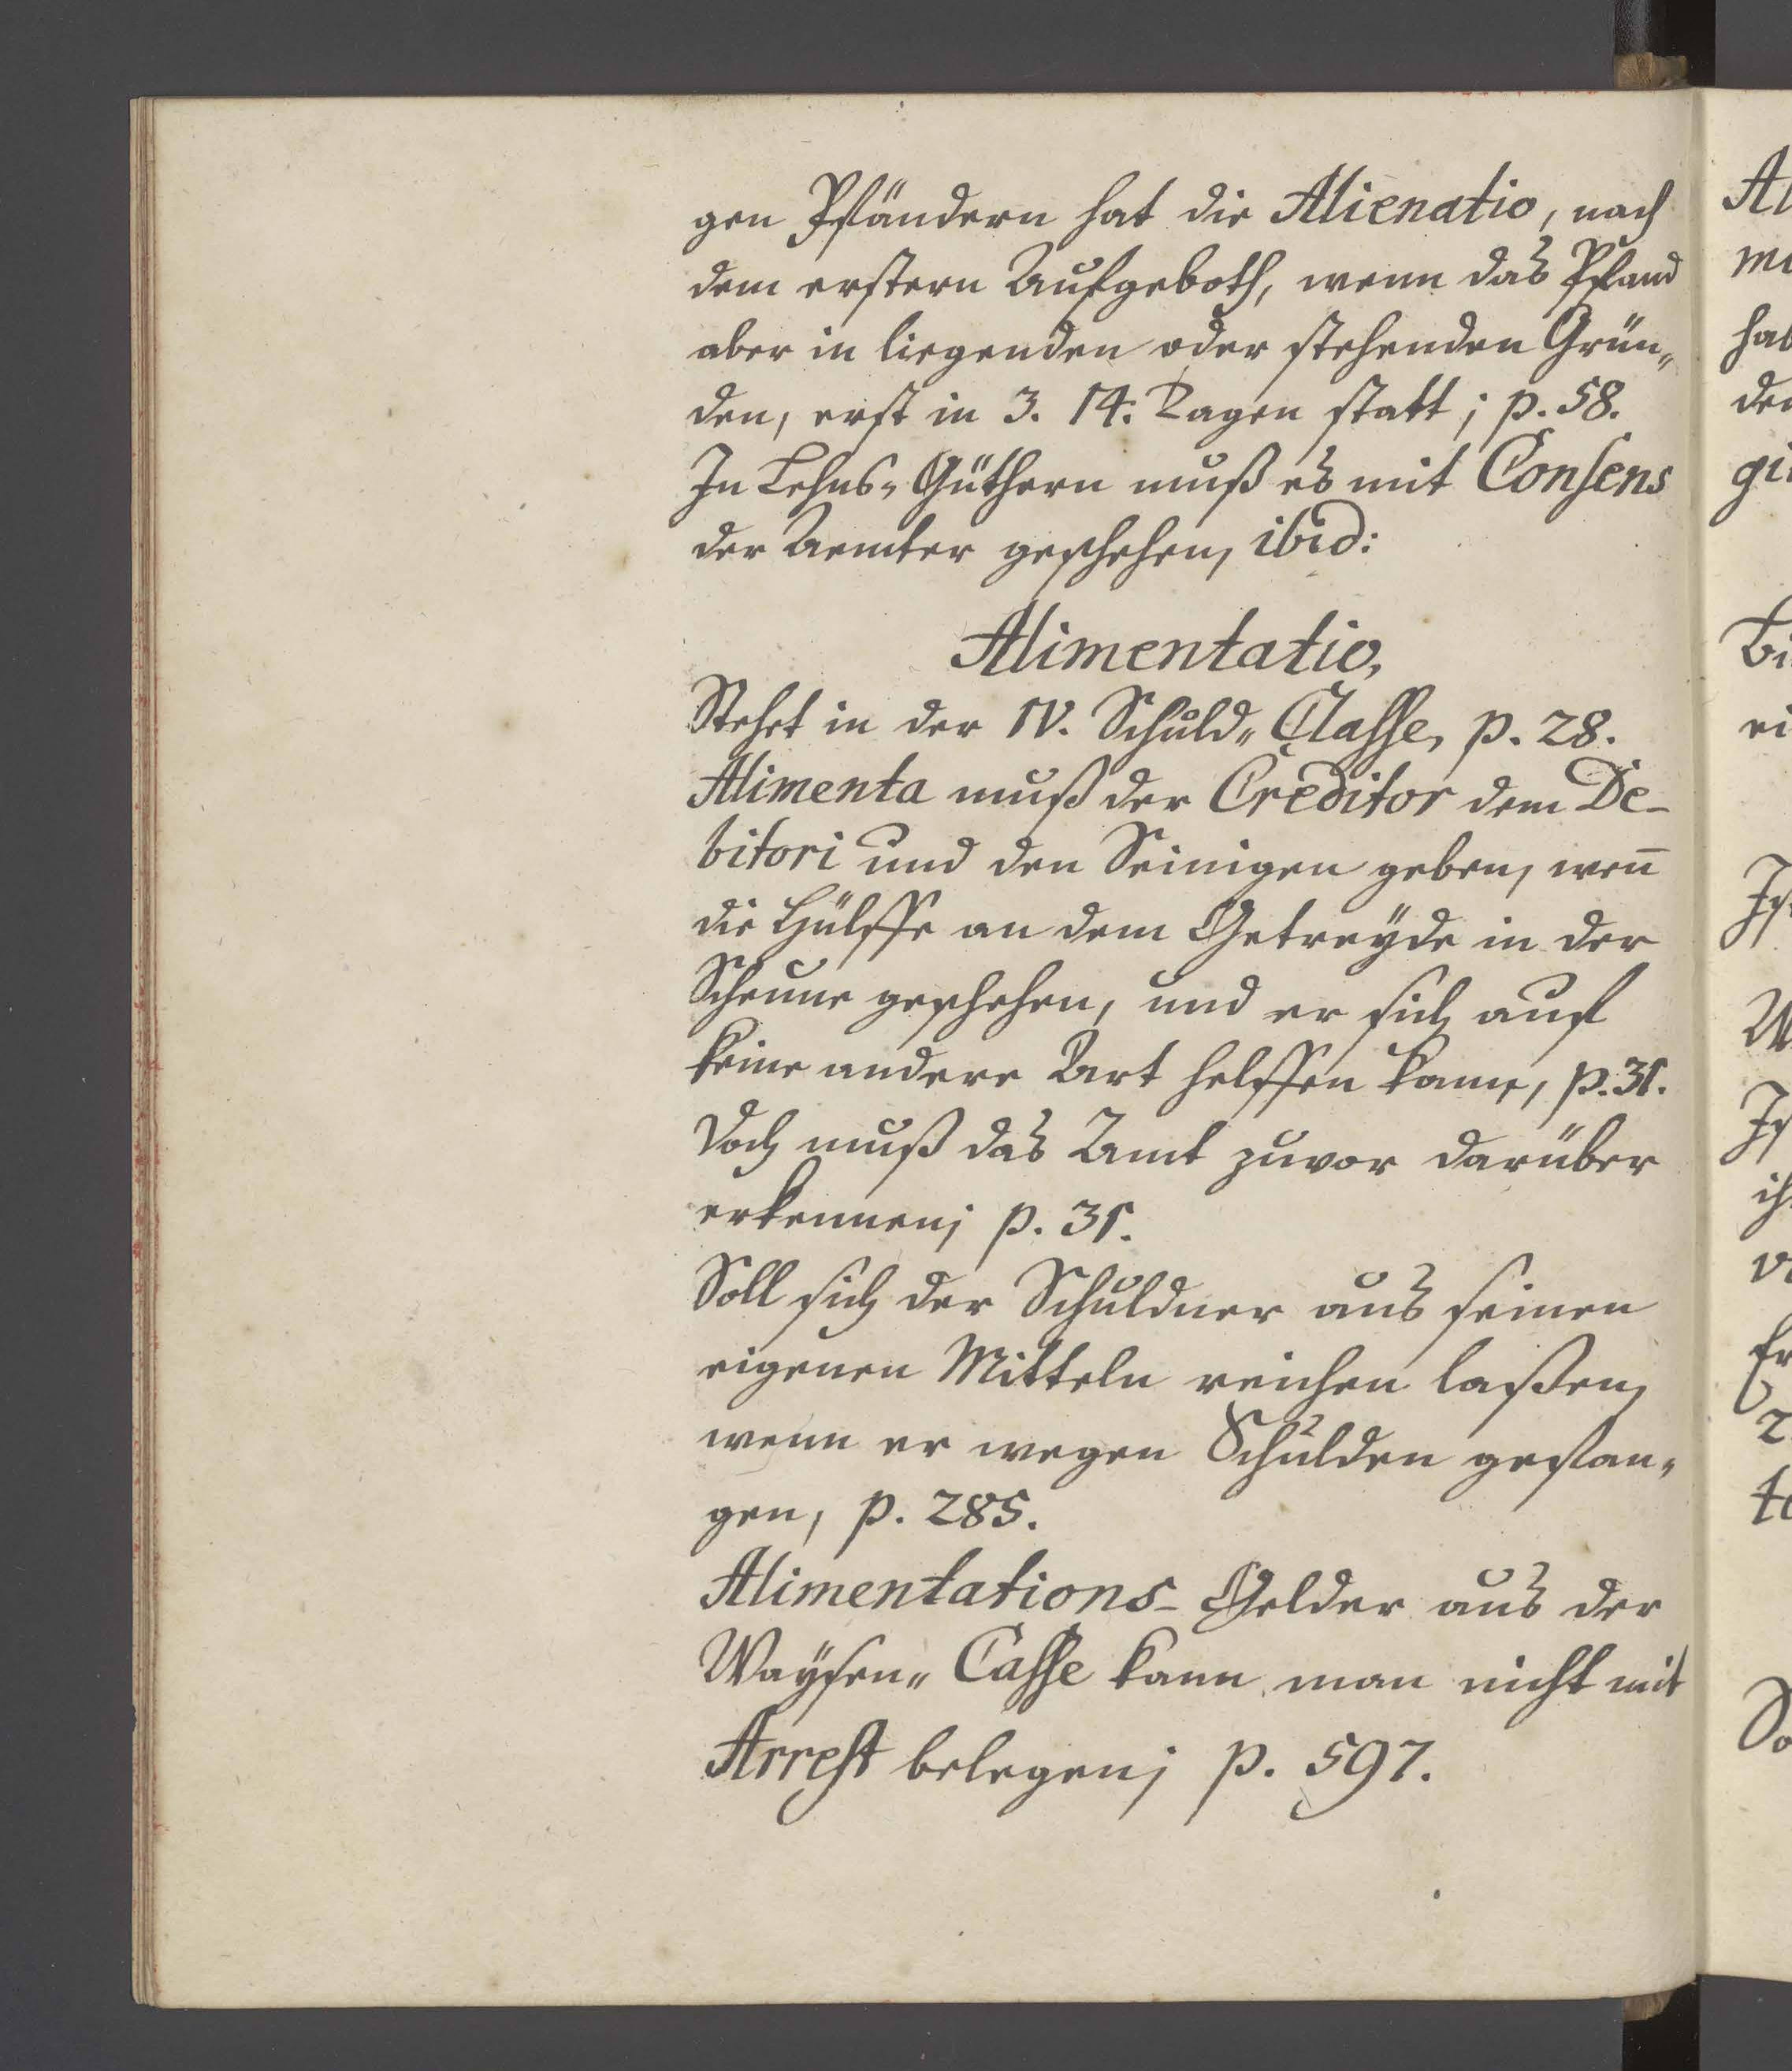 gen Pfändern hat die Alienatio, nach
dem erstern Aufgeboth, wenn das Pfand
aber in liegenden oder stehenden Grün„
den, erst in 3. 14: Tagen statt; p. 58.
In Lehns„ Güthern muß es mit Consens
der Aemter geschehen, ibid:
Alimentatio,
Stehet in der IV. Schuld„ Classe, p. 28.
Alimenta muß der Creditor dem De-
bitori und den Seinigen geben, wen̄
die Hülffe an dem Getreyde in der
Scheune geschehen, und er sich auf
keine andere Art helffen kann, p. 31.
Doch muß das Amt zuvor darüber
erkennen; p. 31.
Soll sich der Schuldner aus seinen
eigenen Mitteln reichen laßen,
wenn er wegen Schulden gefan„
gen, p. 285.
Alimentations- Gelder aus der
Waysen„ Casse kann man nicht mit
Arrest belegen; p. 597.